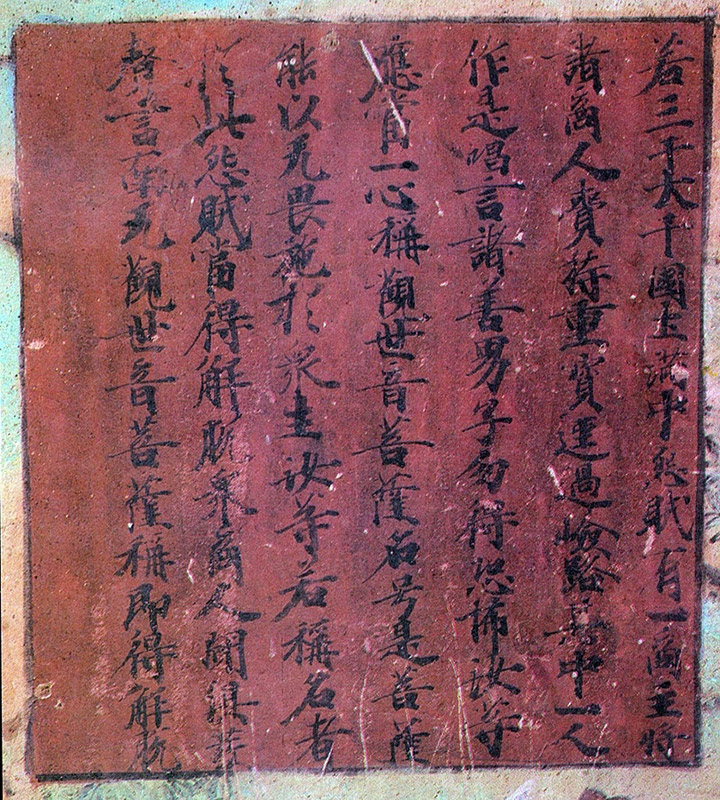 若三千大千國土滿中怨賊有一商主將
諸商人賷持重寶逕過嶮路其中一人
作是唱言諸善男子勿得恐怖汝等
應當一心稱觀世音菩薩名号是菩薩
能以无畏施於衆生汝等若稱名者
於此怨賊當得解脫衆商人聞俱發
聲言南无觀世音菩薩稱即得解脫